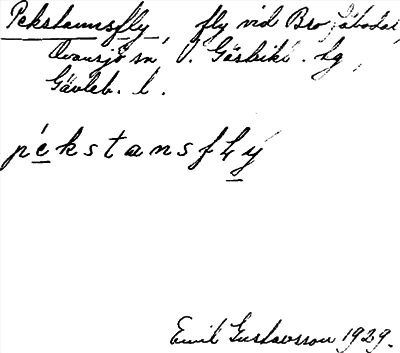 Pekstannsfly, fly vid Bro fäbodar,
Ovansjö sn, Gästrikl. hg,
Gävleb. l.
pékstansflý
Emil Gustavsson 1929.